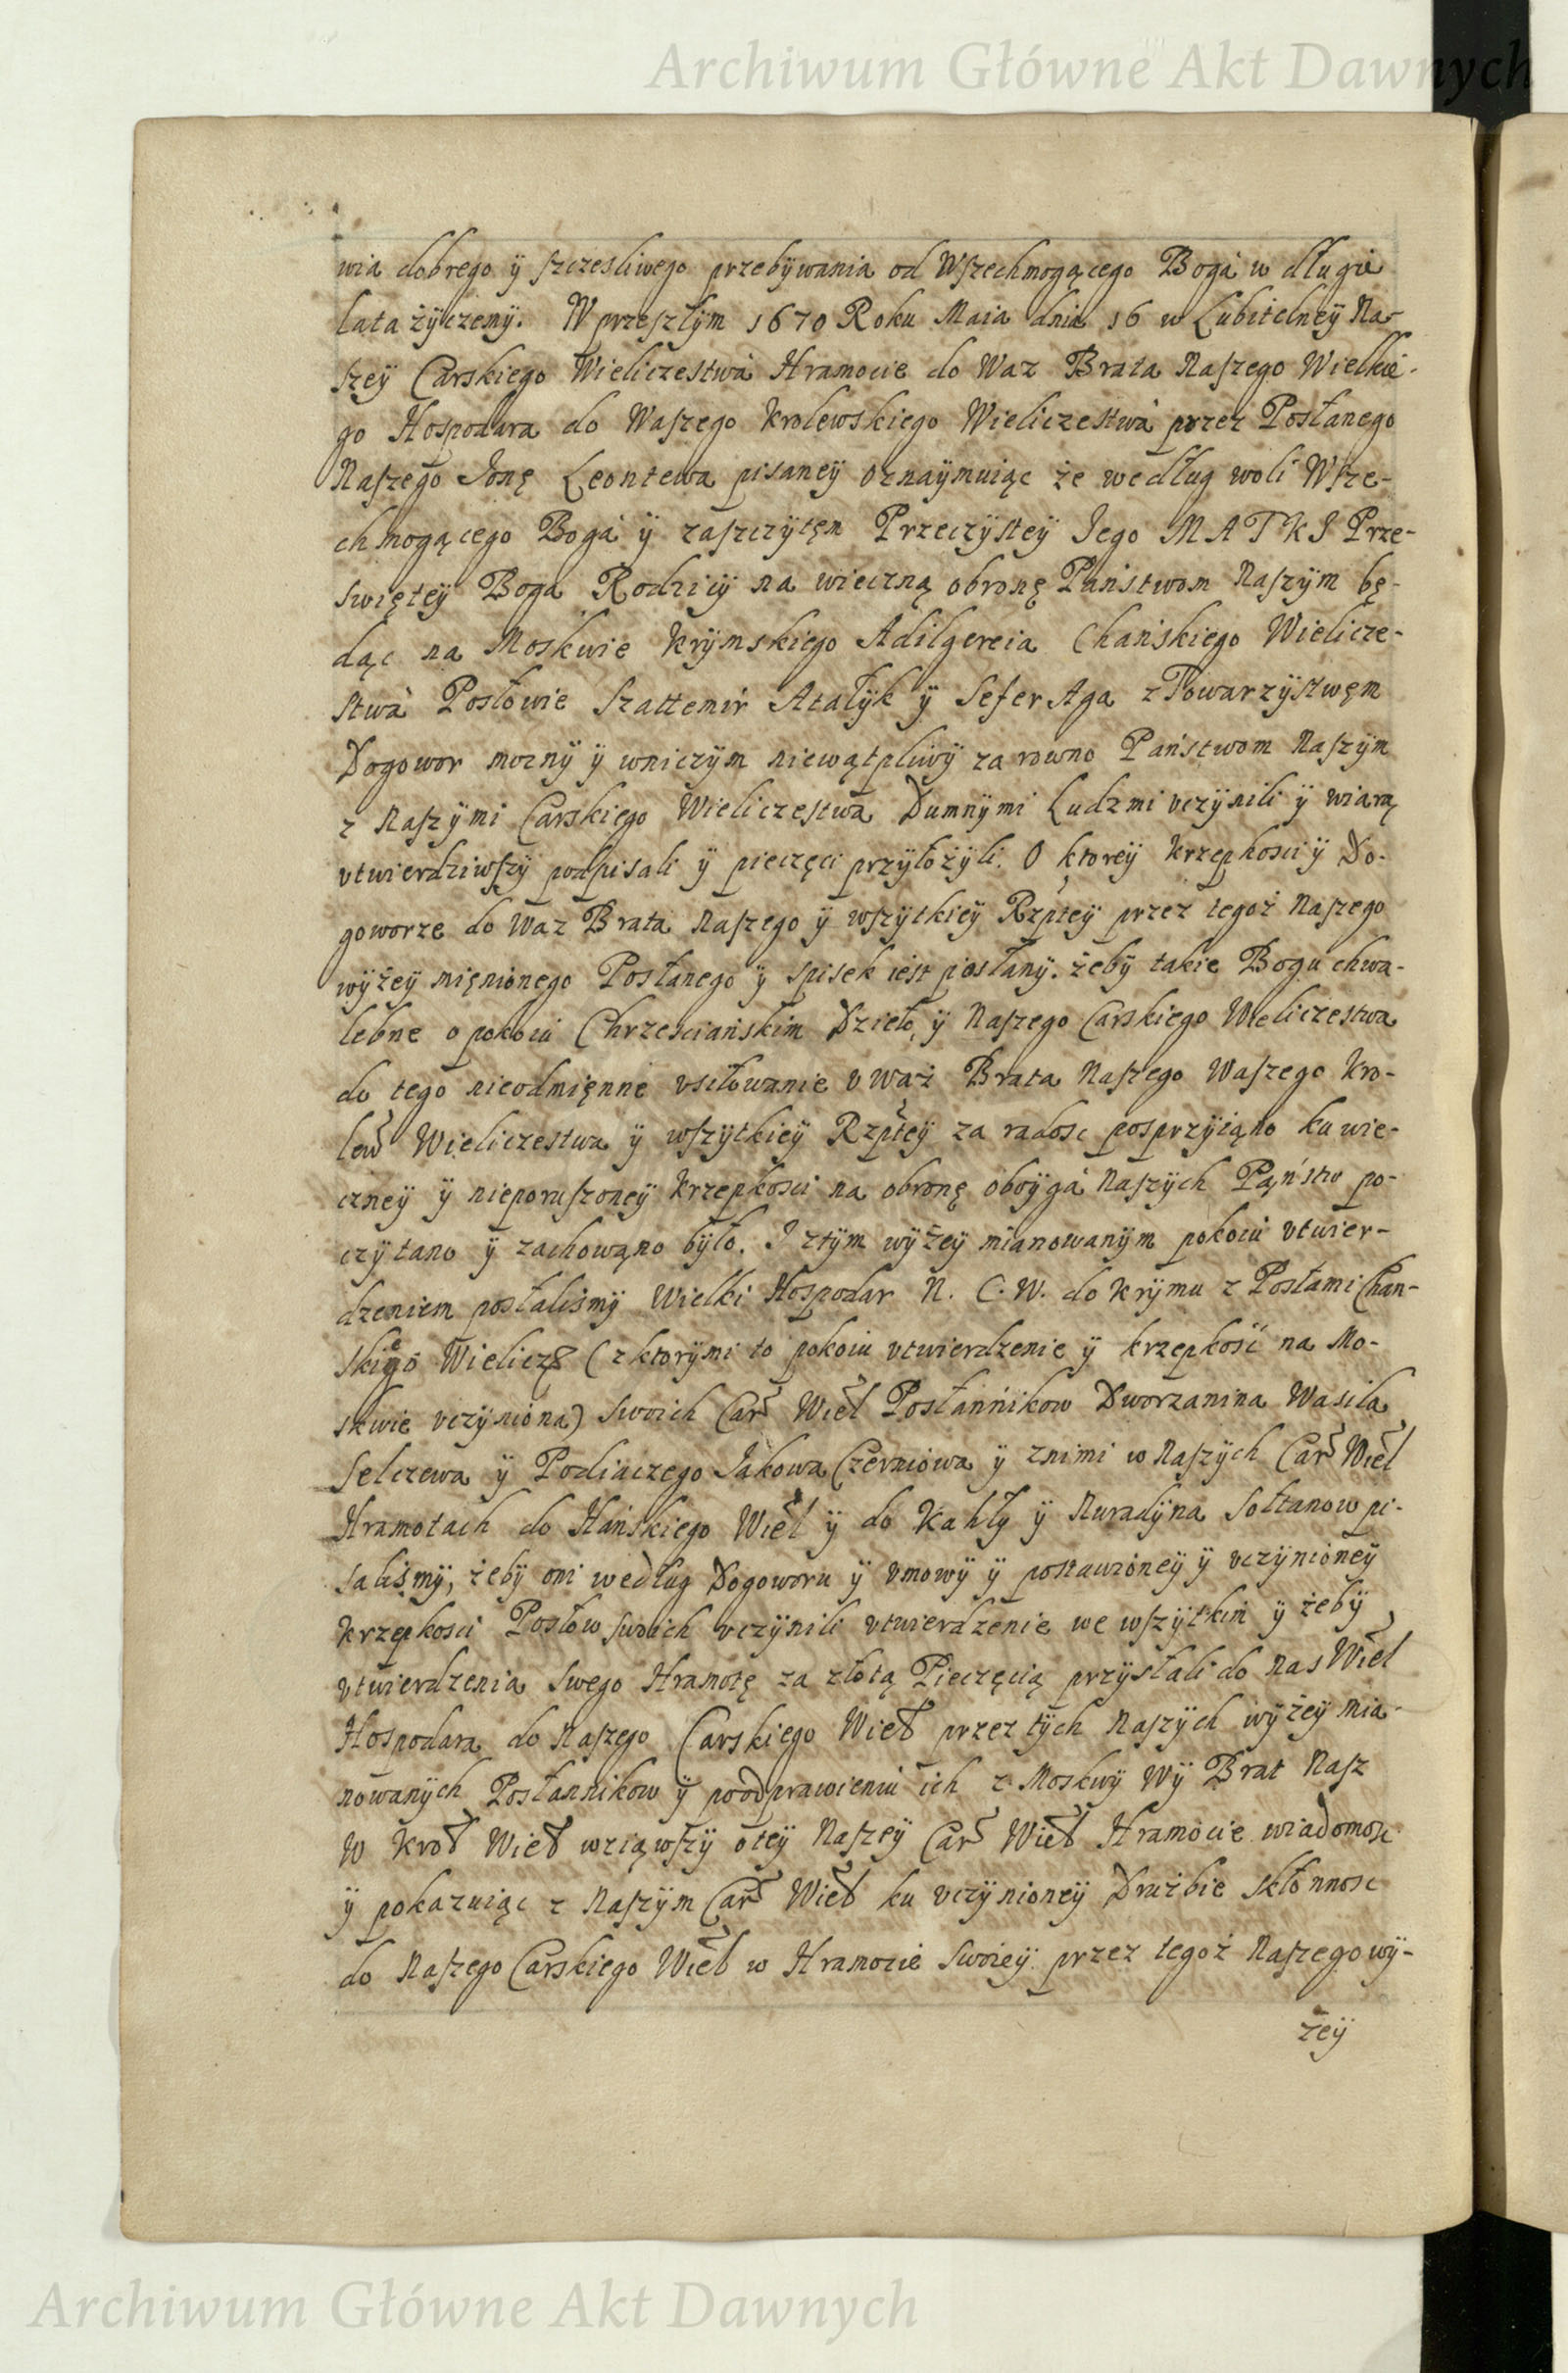 Archiwum Główne Akt Dawnych
wia dobrego ÿ szczesliwego przebÿwania od Wszechmogącego Bogá w długie
lata żÿczemÿ. W przeszłÿm 1670 Roku Maia dnia 16 w Lubitelneÿ Na-
szeÿ Carskiego Wieliczestwá Hramocie do Waz Brata Naszego Wielkie-
go Hospodara do Waszego Krolewskiego Wieliczestwá przez Posłanego
Naszego Jonę Leontewa pisaneÿ oznaÿmuiąc że według woli Wsze-
chmogącego Bogá ÿ zaszczÿtęm Przeczÿsteÿ Jego MATKI Prze-
swięteÿ Boga Rodzicÿ na wieczną obronę Państwom Naszÿm bę-
dąc na Moskwie Krÿmskiego Adilgereia Chańskiego Wielicze-
stwá Posłowie Szattemir Atałÿk ÿ Sefer Aga z Towarzÿstwęm
Dogowor mocnÿ ÿ wniczÿm niewątpliwÿ za rowno Państwom Naszÿm
z Naszÿmi Carskiego Wieliczestwa Dumnÿmi Ludzmi vczÿnili ÿ wiarą
vtwierdziwszÿ podpisali ÿ pieczęci przÿłożÿli. O ktoreÿ krzepkosci ÿ Do-
goworze do Waz Brata Naszego ÿ wszÿtkieÿ Rzpteÿ przez tegoż Naszego
wÿżeÿ mięnionego Posłanego ÿ spisek iest posłanÿ. żebÿ takie Bogu chwa-
lebne o pokoiu Chrzesciańskim Dzieło, ÿ Naszego Carskiego Wieliczestwa
do tego nieodmięnne vsiłowanie v Waż Brata Naszego Waszego Kro-
lew Wieliczestwa ÿ wszÿtkieÿ Rzpteÿ za radosc posprzÿiąno ku wie-
czneÿ ÿ nieporuszoneÿ krzepkosci na obronę oboÿgá Naszÿch Państw po-
czÿtano ÿ zachowąno bÿło. I ztÿm wÿżeÿ mianowanÿm pokoiu vtwier-
dzeniem posłalismÿ Wielki Hospodar N. C. W. do Krÿmu z Posłami Chan-
skiego Wielicz (z ktorÿmi to pokoiu vtwierdzenie ÿ krzepkość na Mo-
skwie vczÿniona) Swoich Car Wiel Posłannikow Dworzanina Wasila
Jelczewa ÿ Podiaczego Jakowa Czerniowa ÿ znimi w Naszÿch Car Wiel
Hramotach do Hańskiego Wiel ÿ do Kahłÿ ÿ Nuradÿna Sołtanow pi-
salismÿ, żebÿ oni według Dogoworu ÿ vmowÿ ÿ postawioneÿ ÿ vczÿnioneÿ
krzepkosci Posłow swoich vczÿnili vtwierdzenie we wszÿtkim ÿ żebÿ
vtwierdzenia Swego Hramotę za złotą Pieczęcią przÿsłali do Nas Wiel
Hospodara do Naszego Carskiego Wiel przez tÿch Naszÿch wÿżeÿ mia-
nowanÿch Posłannikow ÿ po odprawieniu ich z Moskwÿ Wÿ Brat Nasz
W Krol Wiel wziąwszÿ o teÿ Naszeÿ Car Wiel Hramocie wiadomosc
ÿ pokazuiąc z Naszÿm Car Wiel ku vczÿnioneÿ Drużbie skłonnosc
do Naszego Carskiego Wiel w Hramocie Swoieÿ przez tegoż Naszego wÿ-
żeÿ
Archiwum Główne Akt Dawnych